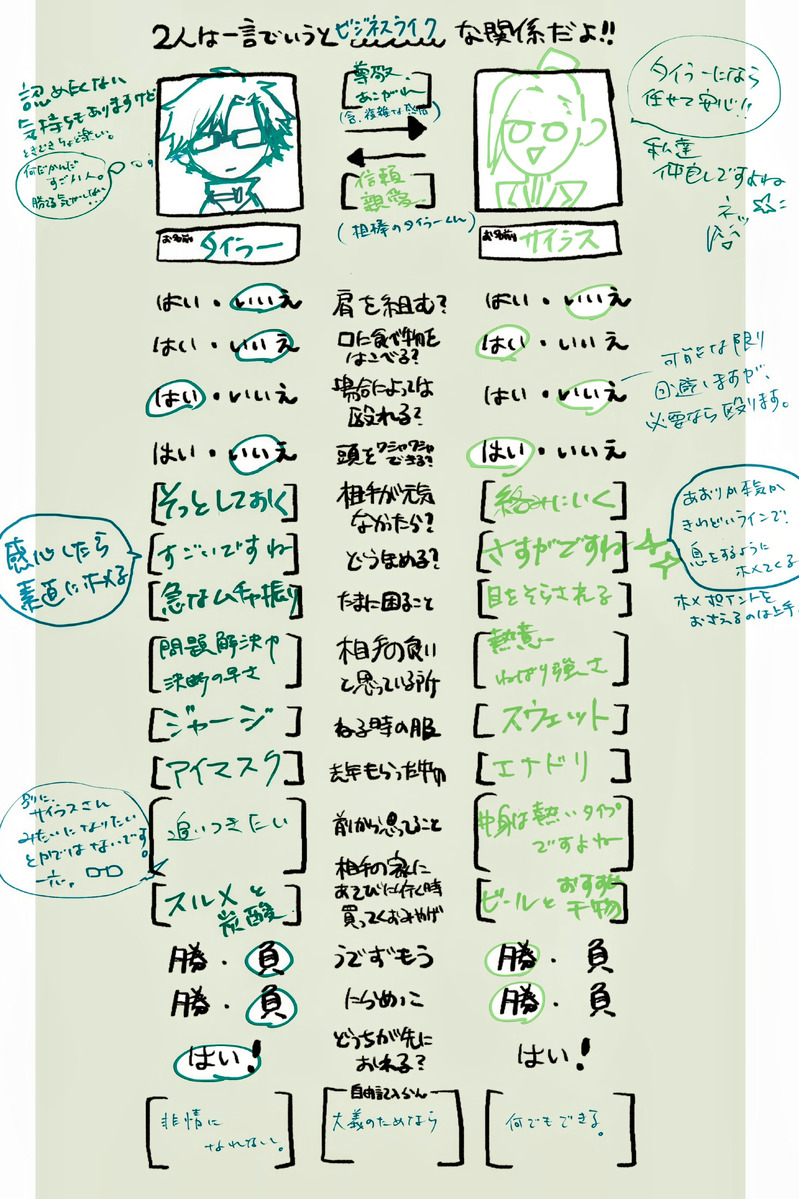 2人は一言でいうとビジネスライクな関係だよ!!
認めたくない
気持ちもありますけど
ときどきちょっと楽しい。
何だかんだ
すごい人。
勝てる気がしない…
尊敬
あこがれ
(含.複雑な感情)
信頼
親愛
(相棒のタイラーくん)
タイラーになら
任せて安心!!
私達
仲良しですよね
ネッ
お名前 タイラー
お名前 サイラス
はい・いいえ 肩を組む? はい・いいえ
はい・いいえ 口に食べ物を はい・いいえ
はこべる?
はい・いいえ 場合によっては はい・いいえ
殴れる?
可能な限り
回避しますが、
必要なら殴ります。
はい・いいえ 頭をワシャワシャ はい・いいえ
できる?
[そっとしておく] 相手が元気 [絡みにいく]
なかったら?
感心したら
素直にホメる
[すごいですね] どうほめる? [さすがですね]
あおりか本気か
きわどいラインで!
息をするように
ホメてくる
ホメポイントを
おさえるのは上手。
[急なムチャ振り] たまに困ること [目をそらされる]
[問題解決力 相手の良い [熱意
決断の早さ] と思っている所 ねばり強さ]
[ジャージ] ねる時の服 [スウェット]
[アイマスク] 去年もらった物 [エナドリ]
別に、
サイラスさん
みたいになりたい
とかではないです。
一応。
[追いつきたい] 前から思ってること [中身は熱いタイプ
ですよね]
相手の家に
[スルメと あそびに行く時 [ビールとおすすめ
炭酸] 買ってくおみやげ 干物]
勝・負 うでずもう 勝・負
勝・負 にらめっこ 勝・負
どっちが先に
はい! おれる? はい!
自由記入らん
[非情に [大義のためなら] [何でもできる。]
なれないし。]